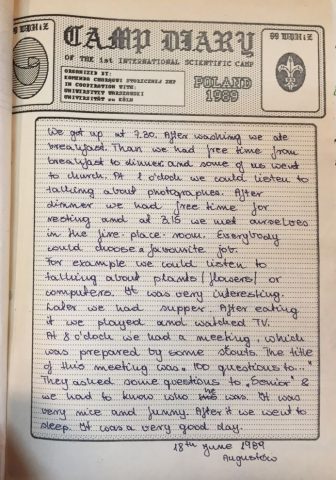 CAMP DIARY
OF THE 1st INTERNATIONAL SCIENTIFIC CAMP
ORGANIZED BY:
KOMENDA CHORĄGWI STOŁECZNEJ ZHP
IN COOPERATION WITH:
UNIWERSYTET WARSZAWSKI
UNIVERSITÄT ZU KÖLN
POLAND
1989
We got up at 7.30. After washing we ate
breakfast. Than we had free time from
breakfast to dinner and some of us went
to church. At 1 o'clock we could listen to
talking about photographes. After
dimmer we had free time for
resting and at 3.15 we met ourselves
in the fire-place-room. Everybody
could choose a favourite job.
For example we could listen to
talking about plants /flowers/ or
computers. It was very interesting.
Later we had supper. After eating
it we played and watched TV.
At 8 o'clock we had a meeting, which
was prepared by some scouts. The title
of this meeting was „ 100 questions to..."
They asked some questions to „Senior" &
we had to know who he was. It was
very nice and funny. After it we went to
sleep. It was a very good day.
18th june 1989
Augustów